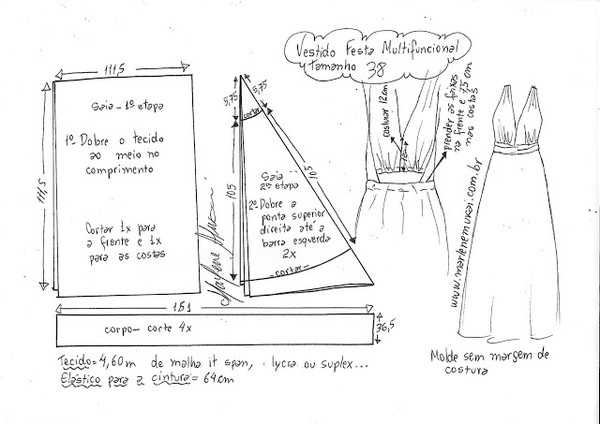 Vestido Festa Multifuncional
Tamanho 38
111,5
111,5
Saia - 1ª etapa
1º Dobre o tecido
ao meio no
comprimento
Cortar 1x para
a frente e 1x
para as costas
5,75
5,75
cortar
105
105
Saia
2ª etapa
2º Dobre a
ponta superior
direita até a
barra esquerda
2x
- cortar -
costurar 12cm
prender as faixas
na frente e 7,5 cm
nas costas
www.marlenemukai.com.br
151
36,5
corpo - corte 4x
Tecido = 4,60m de malha it span, lycra ou suplex...
Elástico para a cintura = 64cm
Molde sem margem de
costura